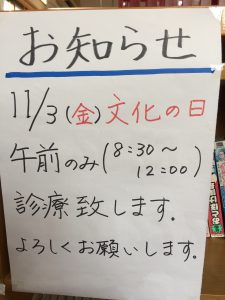 お知らせ
11/3(金)文化の日
午前のみ(8:30〜
12:00)
診療致します.
よろしくお願いします.